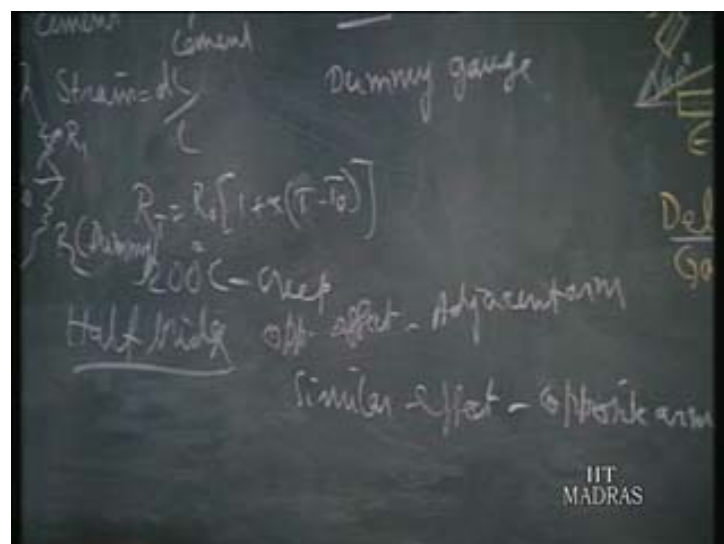 cement
Cement
Strain = dl/l
Dummy gauge
60°
R₁
R_T = R₀[1+α(T-T₀)]
R₂(Dummy)
200°C - creep
Del
Ga
Half bridge opp. effect - Adjacent arm
Similar effect - opposite arm
IIT
MADRAS